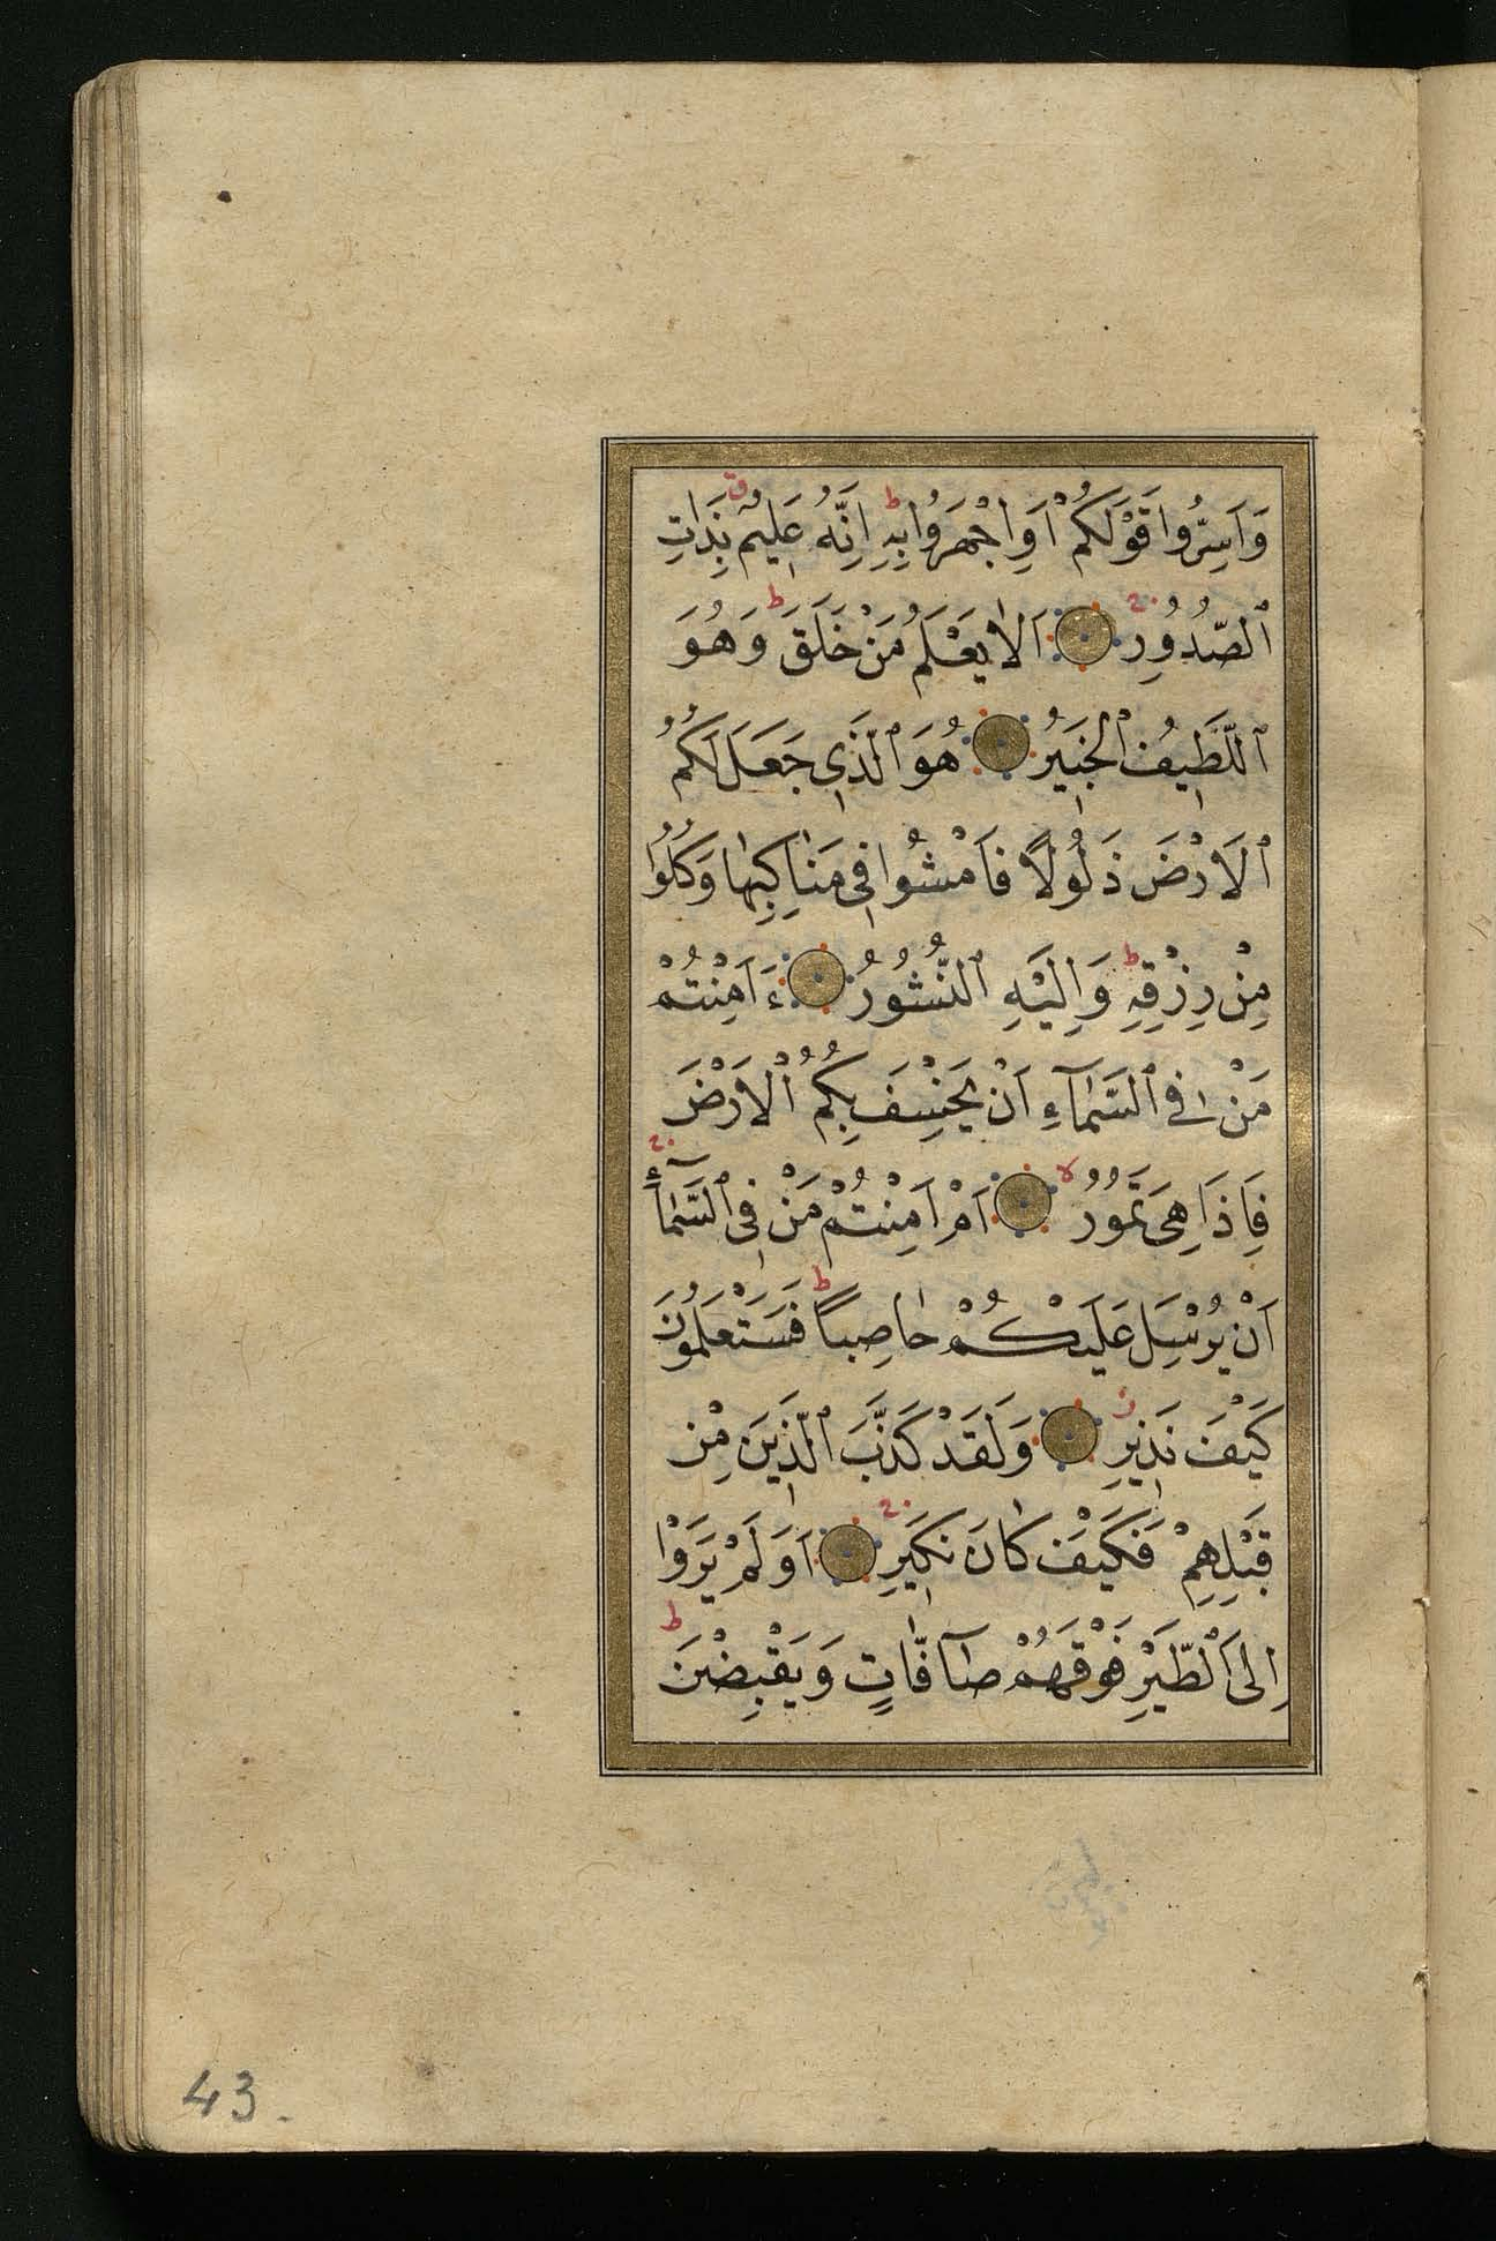 وَاَسِرُّوا قَوْلَكُمْ اَوِ اجْهَرُوا بِهِ ط اِنَّهُ عَلِيمٌ ق بِذَاتِ
ٱلصُّدُورِ اَلَا يَعْلَمُ مَنْ خَلَقَ ط وَهُوَ
ٱللَّطِيفُ ٱلْخَبِيرُ هُوَ ٱلَّذِي جَعَلَ لَكُمُ
ٱلْاَرْضَ ذَلُولًا فَامْشُوا فِي مَنَاكِبِهَا وَكُلُوا
مِنْ رِزْقِهِ ط وَاِلَيْهِ ٱلنُّشُورُ ءَاَمِنْتُمْ
مَنْ فِي ٱلسَّمَآءِ اَنْ يَخْسِفَ بِكُمُ ٱلْاَرْضَ
فَاِذَا هِيَ تَمُورُ لا اَمْ اَمِنْتُمْ مَنْ فِي ٱلسَّمَآءِ
اَنْ يُرْسِلَ عَلَيْكُمْ حَاصِبًا ط فَسَتَعْلَمُونَ
كَيْفَ نَذِيرِ وَلَقَدْ كَذَّبَ ٱلَّذِينَ مِنْ
قَبْلِهِمْ فَكَيْفَ كَانَ نَكِيرِ اَوَلَمْ يَرَوْا
اِلَى ٱلطَّيْرِ فَوْقَهُمْ صَآفَّاتٍ وَيَقْبِضْنَ ط
43